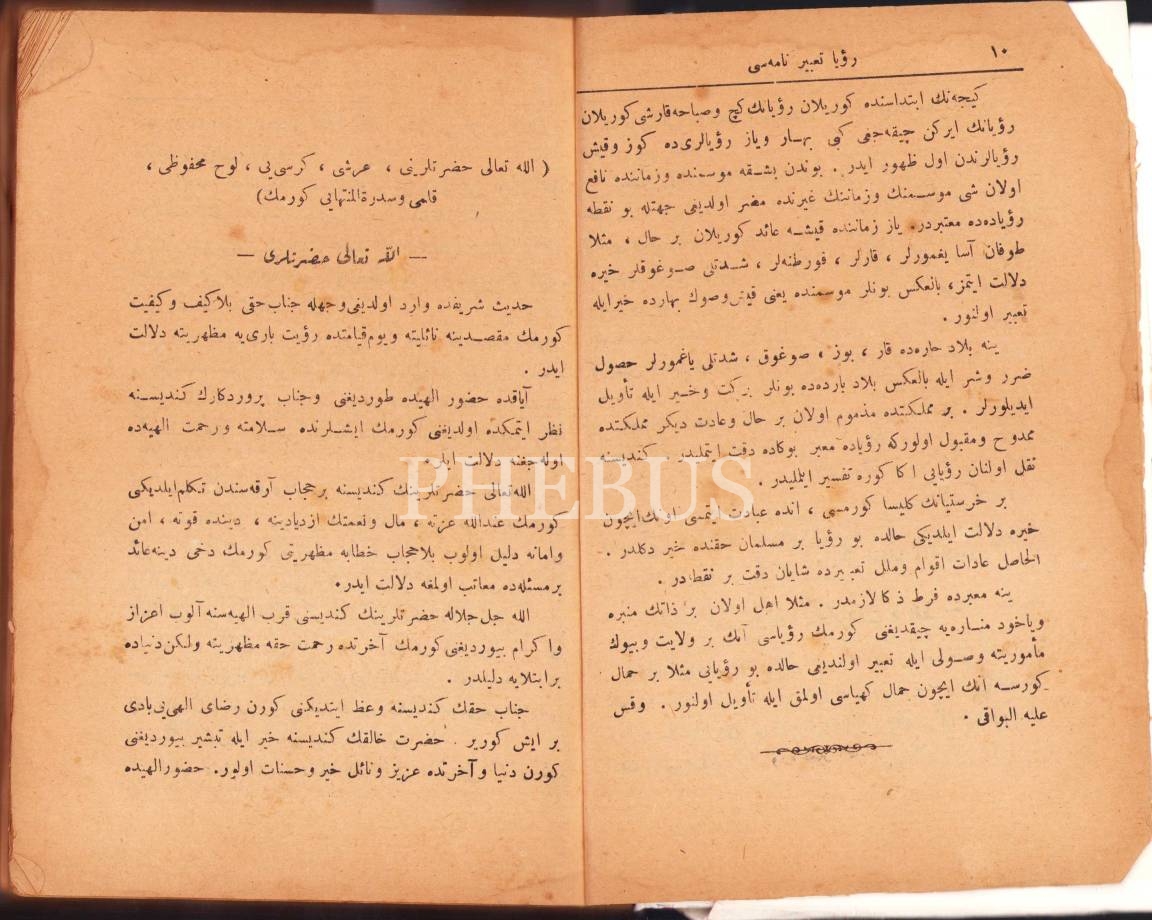 ١٠
رؤيا تعبير نامه‌سى
كيجه‌نك ابتداسنده كوريلان رؤيانك كچ وصباحه قارشى كوريلان
رؤيانك ايركن چيقه‌جغى كبى بهـار وياز رؤيالرى‌ده كوز وقيش
رؤيالرندن اول ظهور ايدر . بوندن بشـقه موسمنده وزماننده نافع
اولان شى موسـمنك وزماننك غيرنده مضر اولديغى جهتله بو نقطه
رؤياده‌ده معتبردر. ياز زماننده قيشـه عائد كوريلان بر حال ، مثلا
طوفان آسا يغمورلر ، قارلر ، فورطنه‌لر ، شـدتلى صـوغوقلر خيره
دلالت ايتمز، بالعكس بونلر موسمنده يعنى قيش وصوك بهارده خيرايله
تعبير اولنور .
ينه بلاد حاره‌ده قار ، بوز ، صوغوق ، شدتلى ياغمورلر حصول
ضرر وشر ايله بالعكس بلاد بارده‌ده بونلر بركت وخـير ايله تأويل
ايديلورلر . بر مملكتده مذموم اولان بر حال وعادت ديكر مملكتده
ممدوح ومقبول اولورکه رؤياده معبر بوكاده دقت ايتمليدر . كنديسنه
نقل اولنان رؤيايى اكا كوره تفسير ايلمليدر .
بر خرستيانك كليسا كورمسى ، انده عبادت ايتمسى اونك ايچون
خيره دلالت ايلديكى حالده بو رؤيا بر مسلمان حقنده خير دكلدر .
الحاصل عادات اقوام وملل تعبيرده شايان دقت بر نقطه‌در .
ينه معبرده فرط ذكا لازمدر . مثلا اهل اولان بر ذاتك منبره
وياخود منـاره‌يه چيقديغنى كورمك رؤياسى آنك بر ولايت وبيوك
مأموريته وصـولى ايله تعبير اولنديغى حالده بو رؤيايى مثلا بر حمال
كورسـه انك ايچون حمال كهياسى اولمق ايله تأويل اولنور . وقس
عليه البواقى .
( الله تعالى حضرتلرينى ، عرشى ، كرسى‌يى ، لوح محفوظى ،
قلمى وسدرة‌المنتهايى كورمك)
— الله تعالى حضرتلرى —
حديث شريفده وارد اولديغى وجهله جناب حقى بلاكيف وكيفيت
كورمك مقصـدينه نائليته ويوم قيامتده رؤيت بارى‌يه مظهريته دلالت
ايدر .
آياقده حضور الهيده طورديغنى وجناب پروردكارك كنديسـنه
نظر ايتمكده اولديغنى كورمك ايشـلرنده سـلامته ورحمت الهيه‌ده
اوله‌جغنه دلالت ايدر .
الله تعالى حضرتلرينك كنديسنه بر حجاب آرقه‌سندن تكلم ايلديكنى
كورمك عندالله عزته ، مال ونعمتك ازديادينه ، دينده قوته ، امن
وامانه دليل اولوب بلاحجاب خطابه مظهريتى كورمك دخى دينه عائد
بر مسئله‌ده معاتب اولمغه دلالت ايدر.
الله جل جلاله حضرتلرينك كنديسنى قرب الهيه‌سنه آلوب اعزاز
واكرام بيورديغنى كورمك آخرتده رحمت حقه مظهريته ولكن دنياده
بر ابتلايه دليلدر .
جناب حقك كنديسنه وعظ ايتديكنى كورن رضاى الهى‌يى بادى
بر ايش كورير . حضرت خالقك كنديسنه خير ايله تبشير بيورديغنى
كورن دنيا وآخرتده عزيز ونائل خير وحسنات اولور. حضورالهيده
PHEBUS